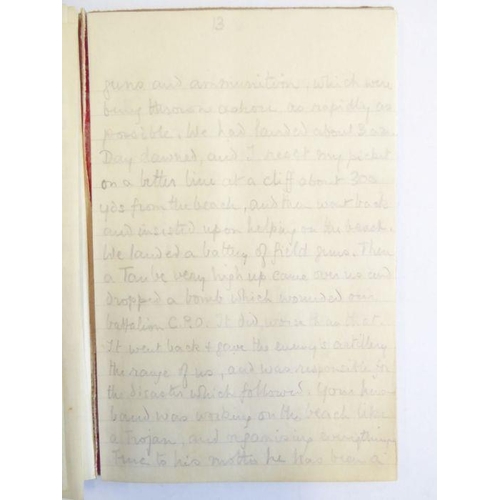 13
guns and ammunition, which were
being thrown ashore as rapidly as
possible. We had landed about 3 a.m.
Day dawned, and I reset my picket
on a better line at a cliff about 300
yds from the beach, and then went back
and insisted upon helping on the beach.
We landed a battery of field guns. Then
a Taube very high up came over us and
dropped a bomb which wounded our
battalion C.P.O. It did worse than that.
It went back & gave the enemy's artillery
the range of us, and was responsible for
the disaster which followed. Your hus
band was working on the beach like
a Trojan, and organising everything
True to his motto he has been a